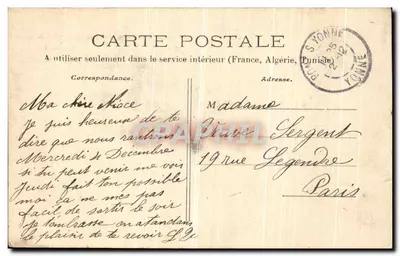 CARTE POSTALE
A utiliser seulement dans le service intérieur (France, Algérie, Tunisie)
Correspondance.
Adresse.
PONT S YONNE
YONNE
Ma chère Nièce
Je suis heureuse de te
dire que nous rentrons
Mercredi 4 Decembre
si tu peut venir me voir
Jeudi fait ton possible
moi ça ne mes pas
facil de sortir le soir
je t'embrasse en atandans
le plaisir de te revoir
Madame
Veuve Sergent
19 rue Legendre
Paris